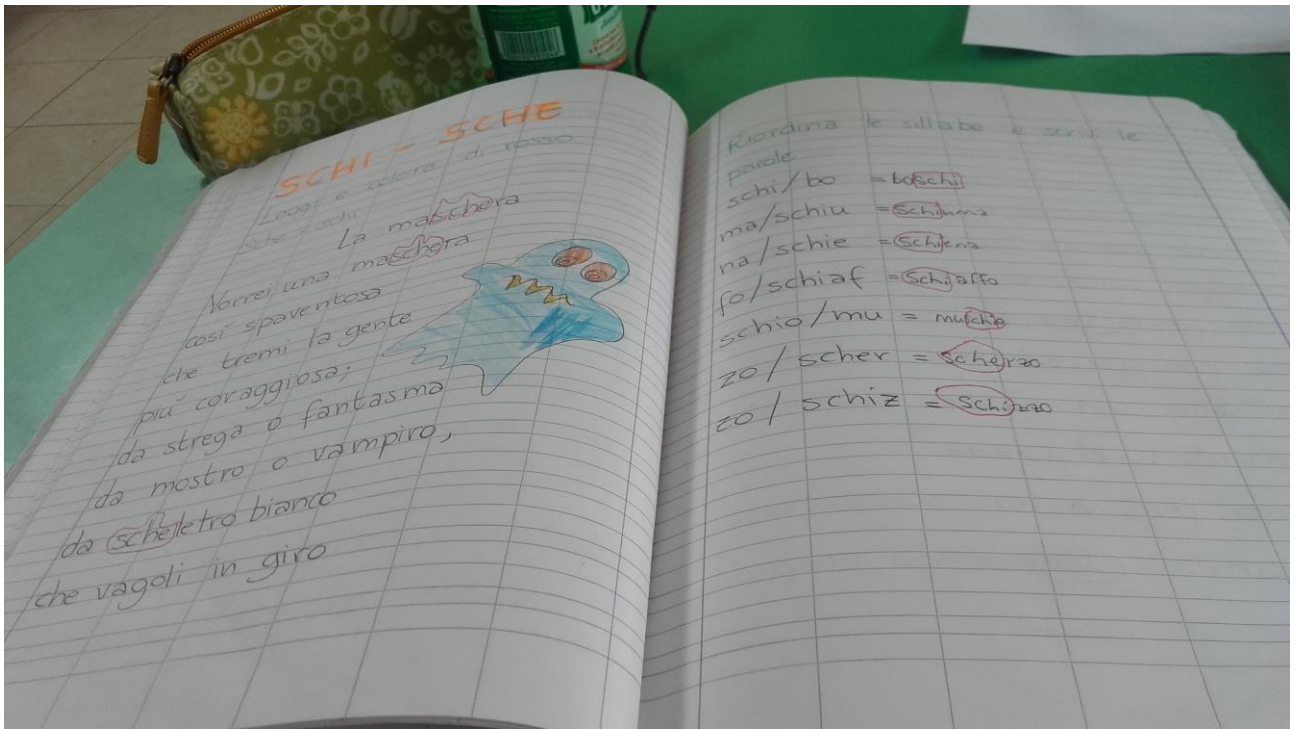 SCHI - SCHE
Leggi e colora di rosso
sche - schi
La maschera
Vorrei una maschera
così spaventosa
che tremi la gente
più coraggiosa;
da strega o fantasma
da mostro o vampiro,
da scheletro bianco
che vagoli in giro
Riordina le sillabe e scrivi le
parole
schi/bo = boschi
ma/schiu = schiuma
na/schie = schiena
fo/schiaf = schiaffo
schio/mu = muschio
zo/scher = scherzo
zo/schiz = schizzo